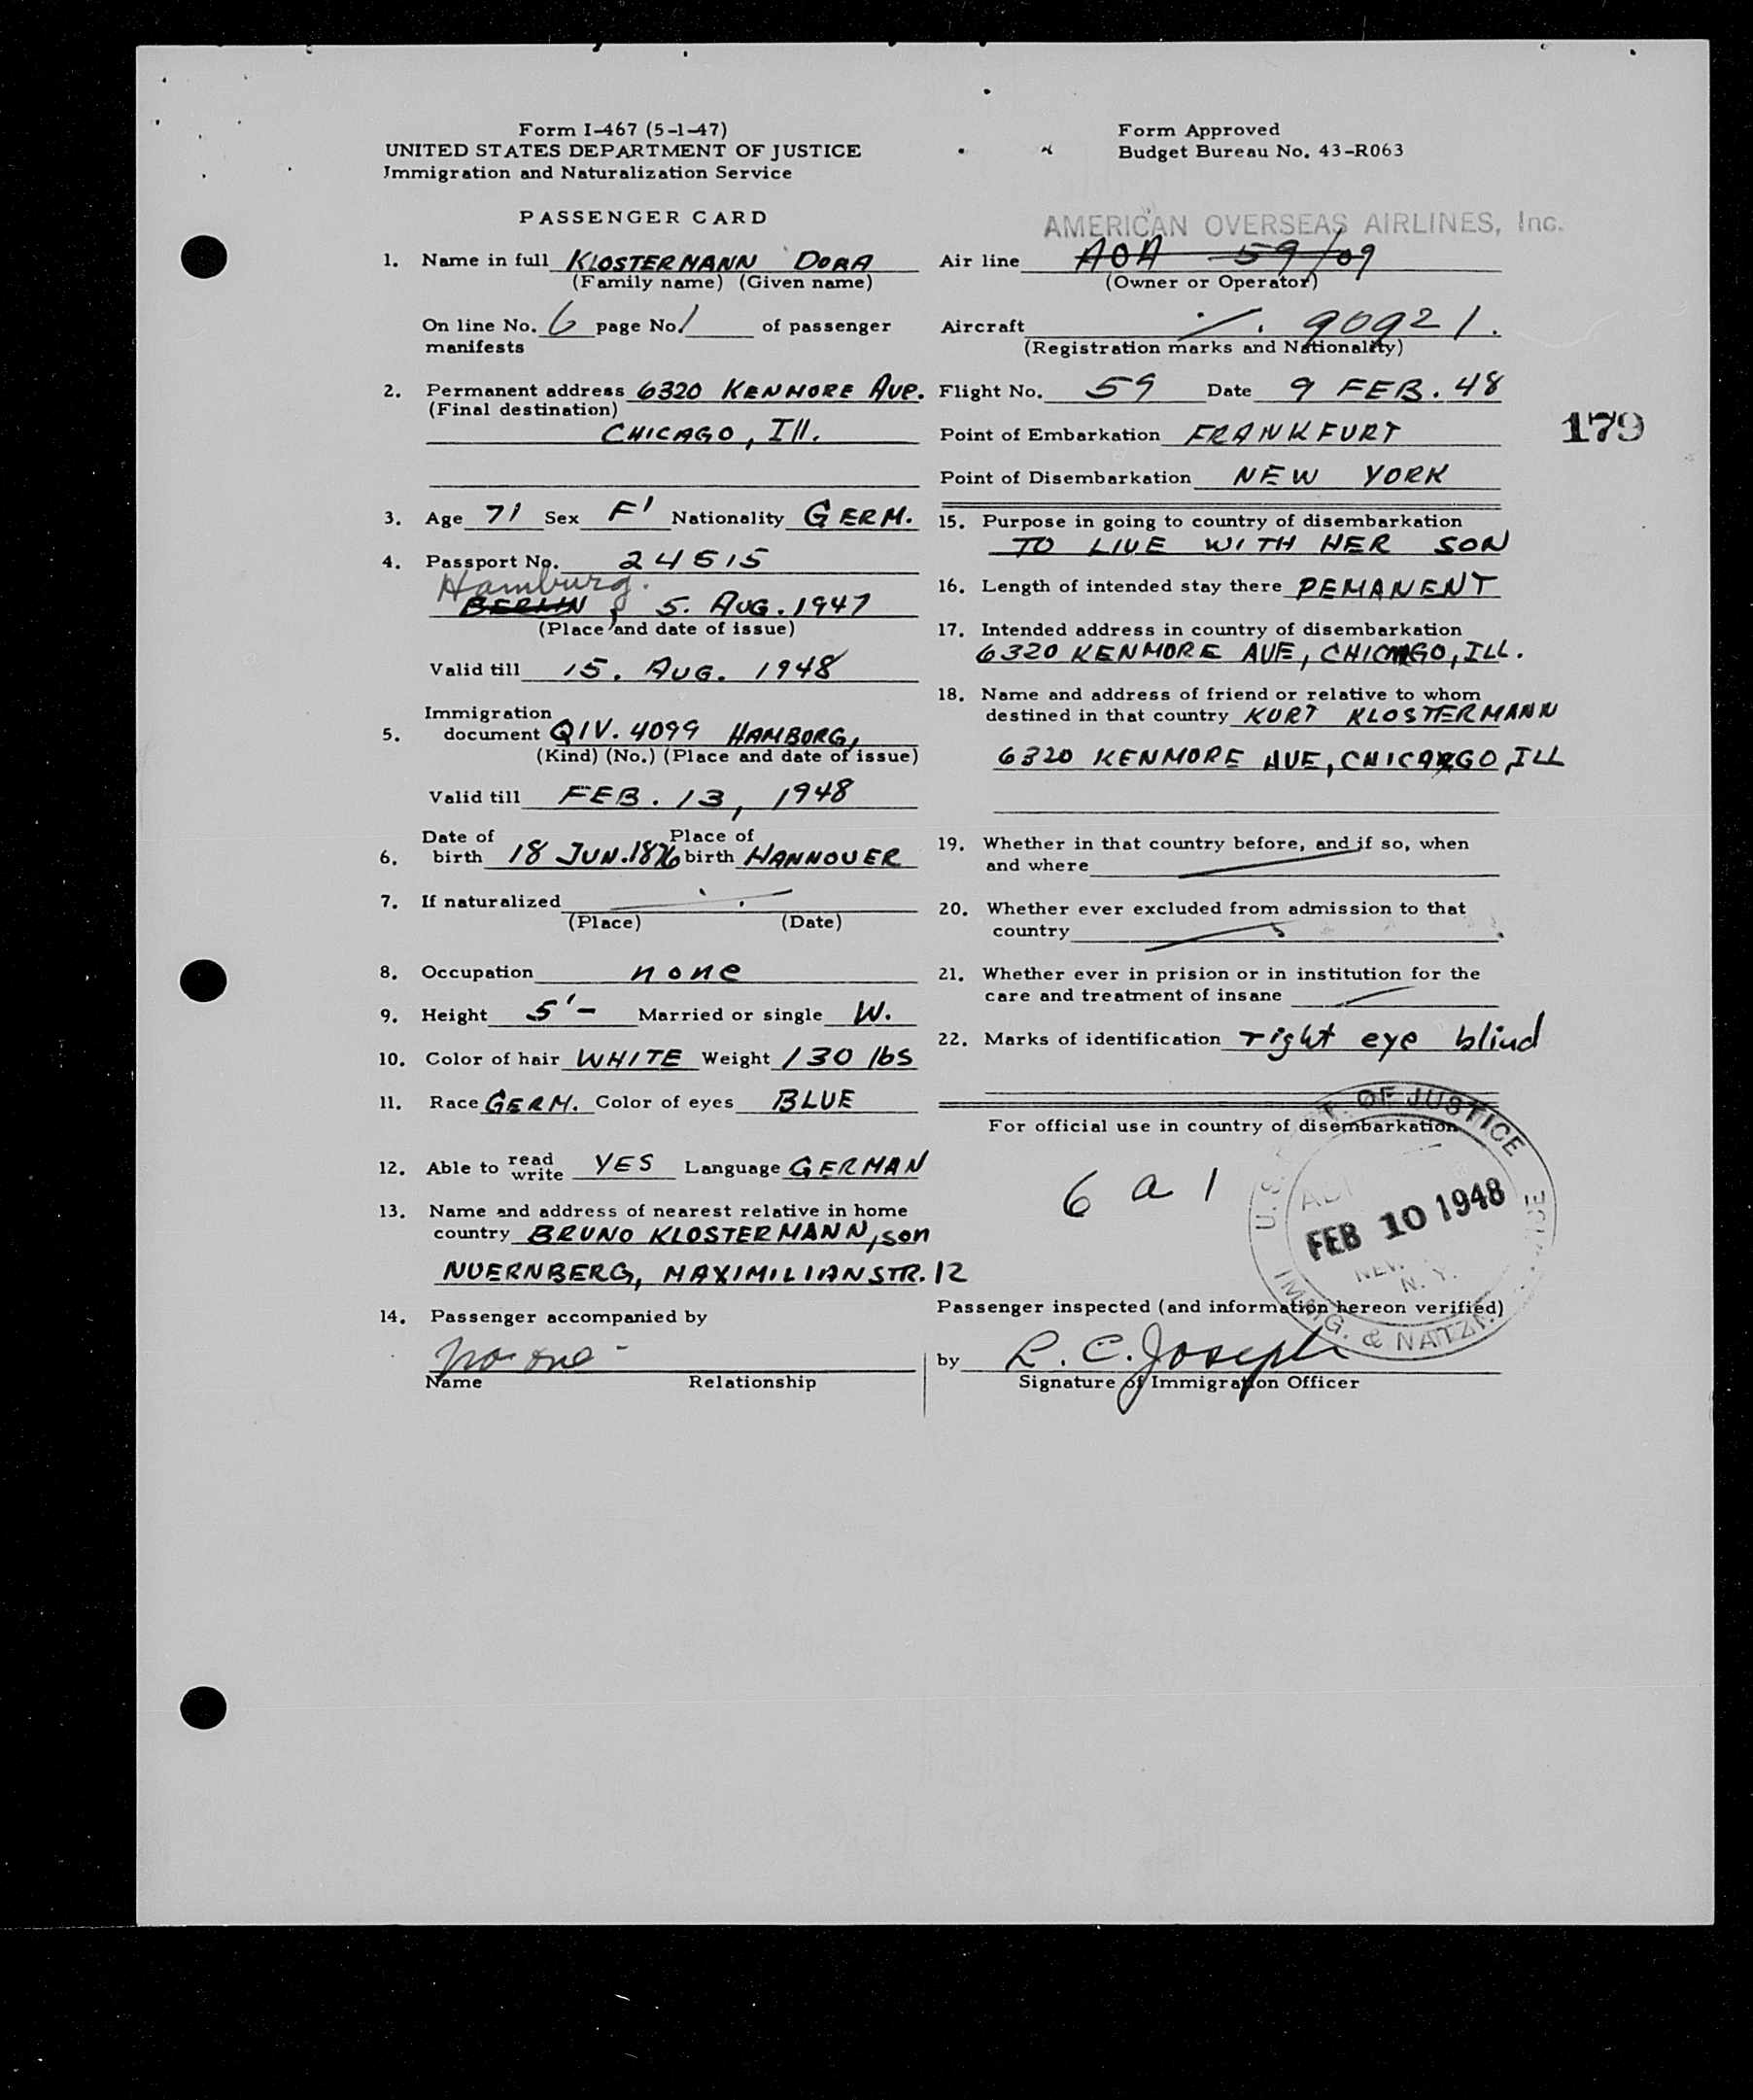 Form I-467 (5-1-47)
UNITED STATES DEPARTMENT OF JUSTICE
Immigration and Naturalization Service
PASSENGER CARD
1. Name in full KLOSTERMANN DORA
(Family name) (Given name)
On line No. 6 page No. 1 of passenger
manifests
2. Permanent address 6320 KENMORE AVE.
(Final destination)
CHICAGO, Ill.
3. Age 71 Sex F Nationality GERM.
4. Passport No. 24515
Hamburg.
BERLIN, 5. AUG. 1947
(Place and date of issue)
Valid till 15. AUG. 1948
Immigration
5. document QIV. 4099 HAMBORG,
(Kind) (No.) (Place and date of issue)
Valid till FEB. 13, 1948
Date of Place of
6. birth 18 JUN. 1876 birth HANNOVER
7. If naturalized
(Place) (Date)
8. Occupation none
9. Height 5'- Married or single W.
10. Color of hair WHITE Weight 130 lbs
11. Race GERM. Color of eyes BLUE
12. Able to read write YES Language GERMAN
13. Name and address of nearest relative in home
country BRUNO KLOSTERMANN, son
NUERNBERG, MAXIMILIANSTR. 12
14. Passenger accompanied by
no one -
Name Relationship
Form Approved
Budget Bureau No. 43-R063
AMERICAN OVERSEAS AIRLINES, Inc.
Air line AOA 59/09
(Owner or Operator)
Aircraft 90921.
(Registration marks and Nationality)
Flight No. 59 Date 9 FEB. 48
Point of Embarkation FRANKFURT
179
Point of Disembarkation NEW YORK
15. Purpose in going to country of disembarkation
TO LIVE WITH HER SON
16. Length of intended stay there PEMANENT
17. Intended address in country of disembarkation
6320 KENMORE AVE, CHICAGO, ILL.
18. Name and address of friend or relative to whom
destined in that country KURT KLOSTERMANN
6320 KENMORE AVE, CHICAGO, ILL
19. Whether in that country before, and if so, when
and where
20. Whether ever excluded from admission to that
country
21. Whether ever in prision or in institution for the
care and treatment of insane
22. Marks of identification right eye blind
For official use in country of disembarkation
6 a 1
OF JUSTICE
FEB 10 1948
N. Y.
IMMIG. & NATZ.
Passenger inspected (and information hereon verified)
by R. C. Joseph
Signature of Immigration Officer